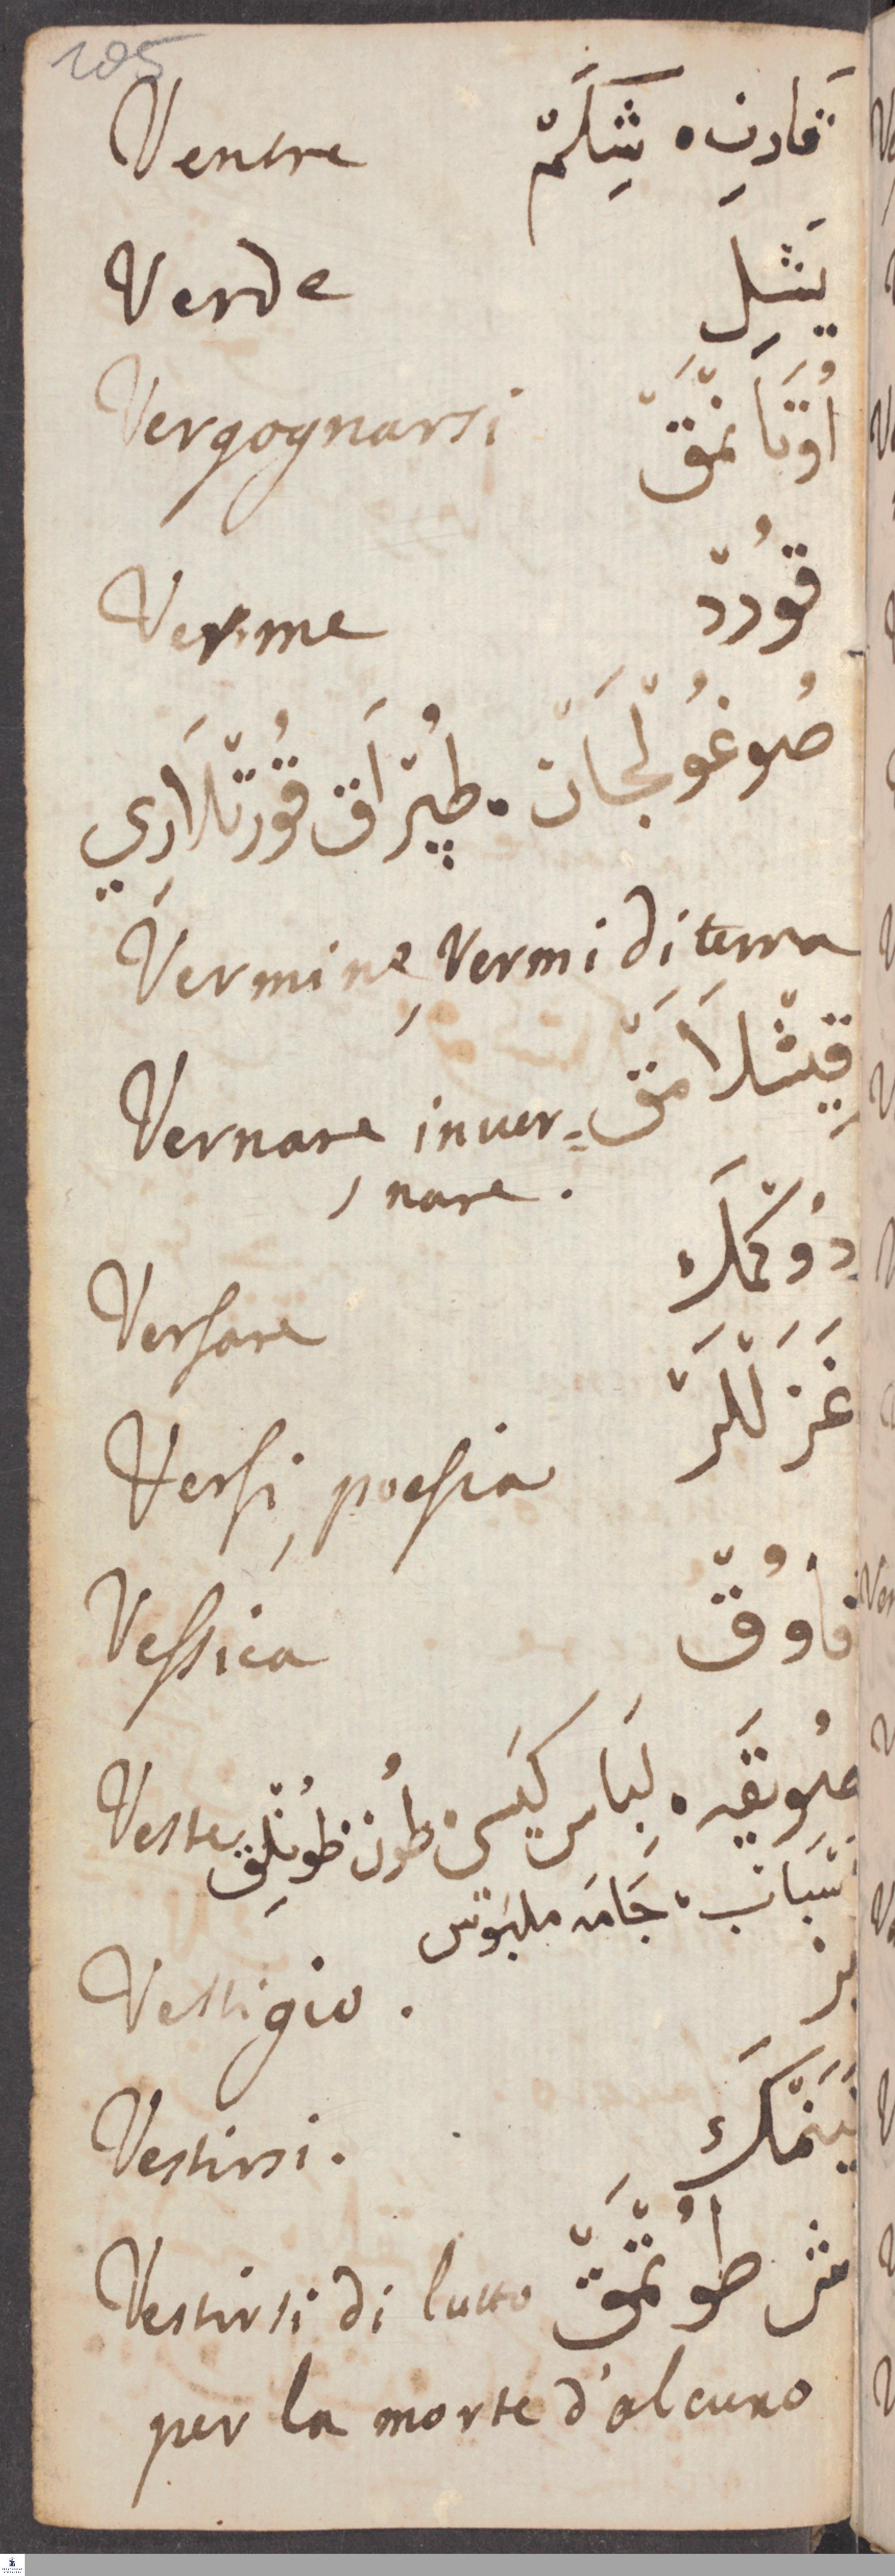 105
Ventre قَارنِ • شِكَمْ
Verde يَشِلْ
Vergognarsi اُوتَانْمَقْ
Verme قوُردْ
صُوغُولْجَانْ • طُپْرَاقْ قُورْتْلَارِي
Vermine, Vermi di terra
Vernare inver= قِيشْلَامَقْ
nare.
Versare دُوكْمَكْ
Versi, poesia غَزَلْلَرْ
Vessica قاوُقْ
Veste لِبَاس كَيَسى طُون طُونْلِق
جَامَه ملبوس
Vestigio . يز
Vestirsi .
Vestirsi di lutto طُوتْمَقْ
per la morte d'alcuno